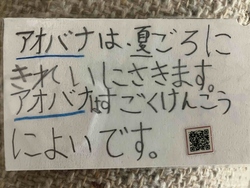 アオバナは、夏ごろに
きれいにさきます。
アオバナはすごくけんこう
によいです。